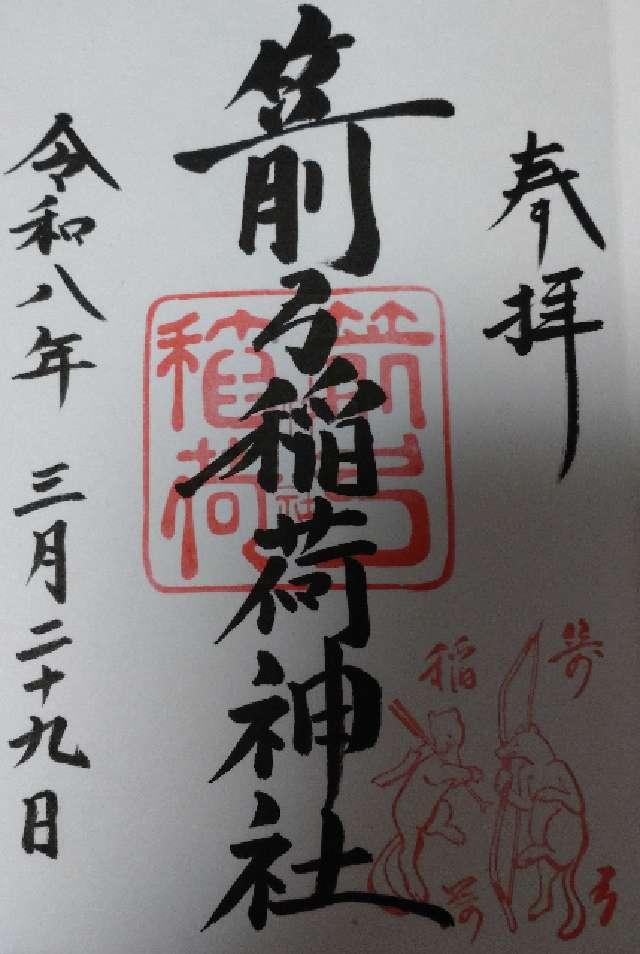 奉拝
箭弓稲荷神社
箭弓稲荷
社
令和八年 三月二十九日
箭弓
稲荷